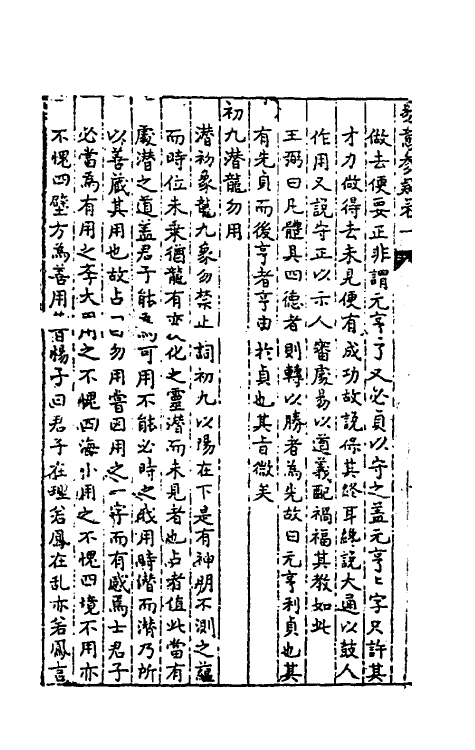 易意參疑卷一
做去便要正非謂元亨了又必貞以守之蓋元亨亨字只許其
才力做得去未見便有成功故說保其終耳緣說大通以鼓人
作用又說守正以示人審處易以道義配禍福其教如此
王弼曰凡體具四德者則轉以勝者為先故曰元亨利貞也其
有先貞而後亨者亨由於貞也其旨微矣
初九潛龍勿用
潛初象龍九象勿禁止詞初九以陽在下是有神明不測之蘊
而時位未乘猶龍有变化之靈潛而未見者也占者值此當有
處潛之道蓋君子能為可用不能必時之我用時潛而潛乃所
以善藏其用也故占曰勿用嘗因用之一字而有感焉士君子
必當為有用之學大用之不愧四海小用之不愧四境不用亦
不愧四壁方為善用昔楊子曰君子在理若鳳在乱亦若鳳言